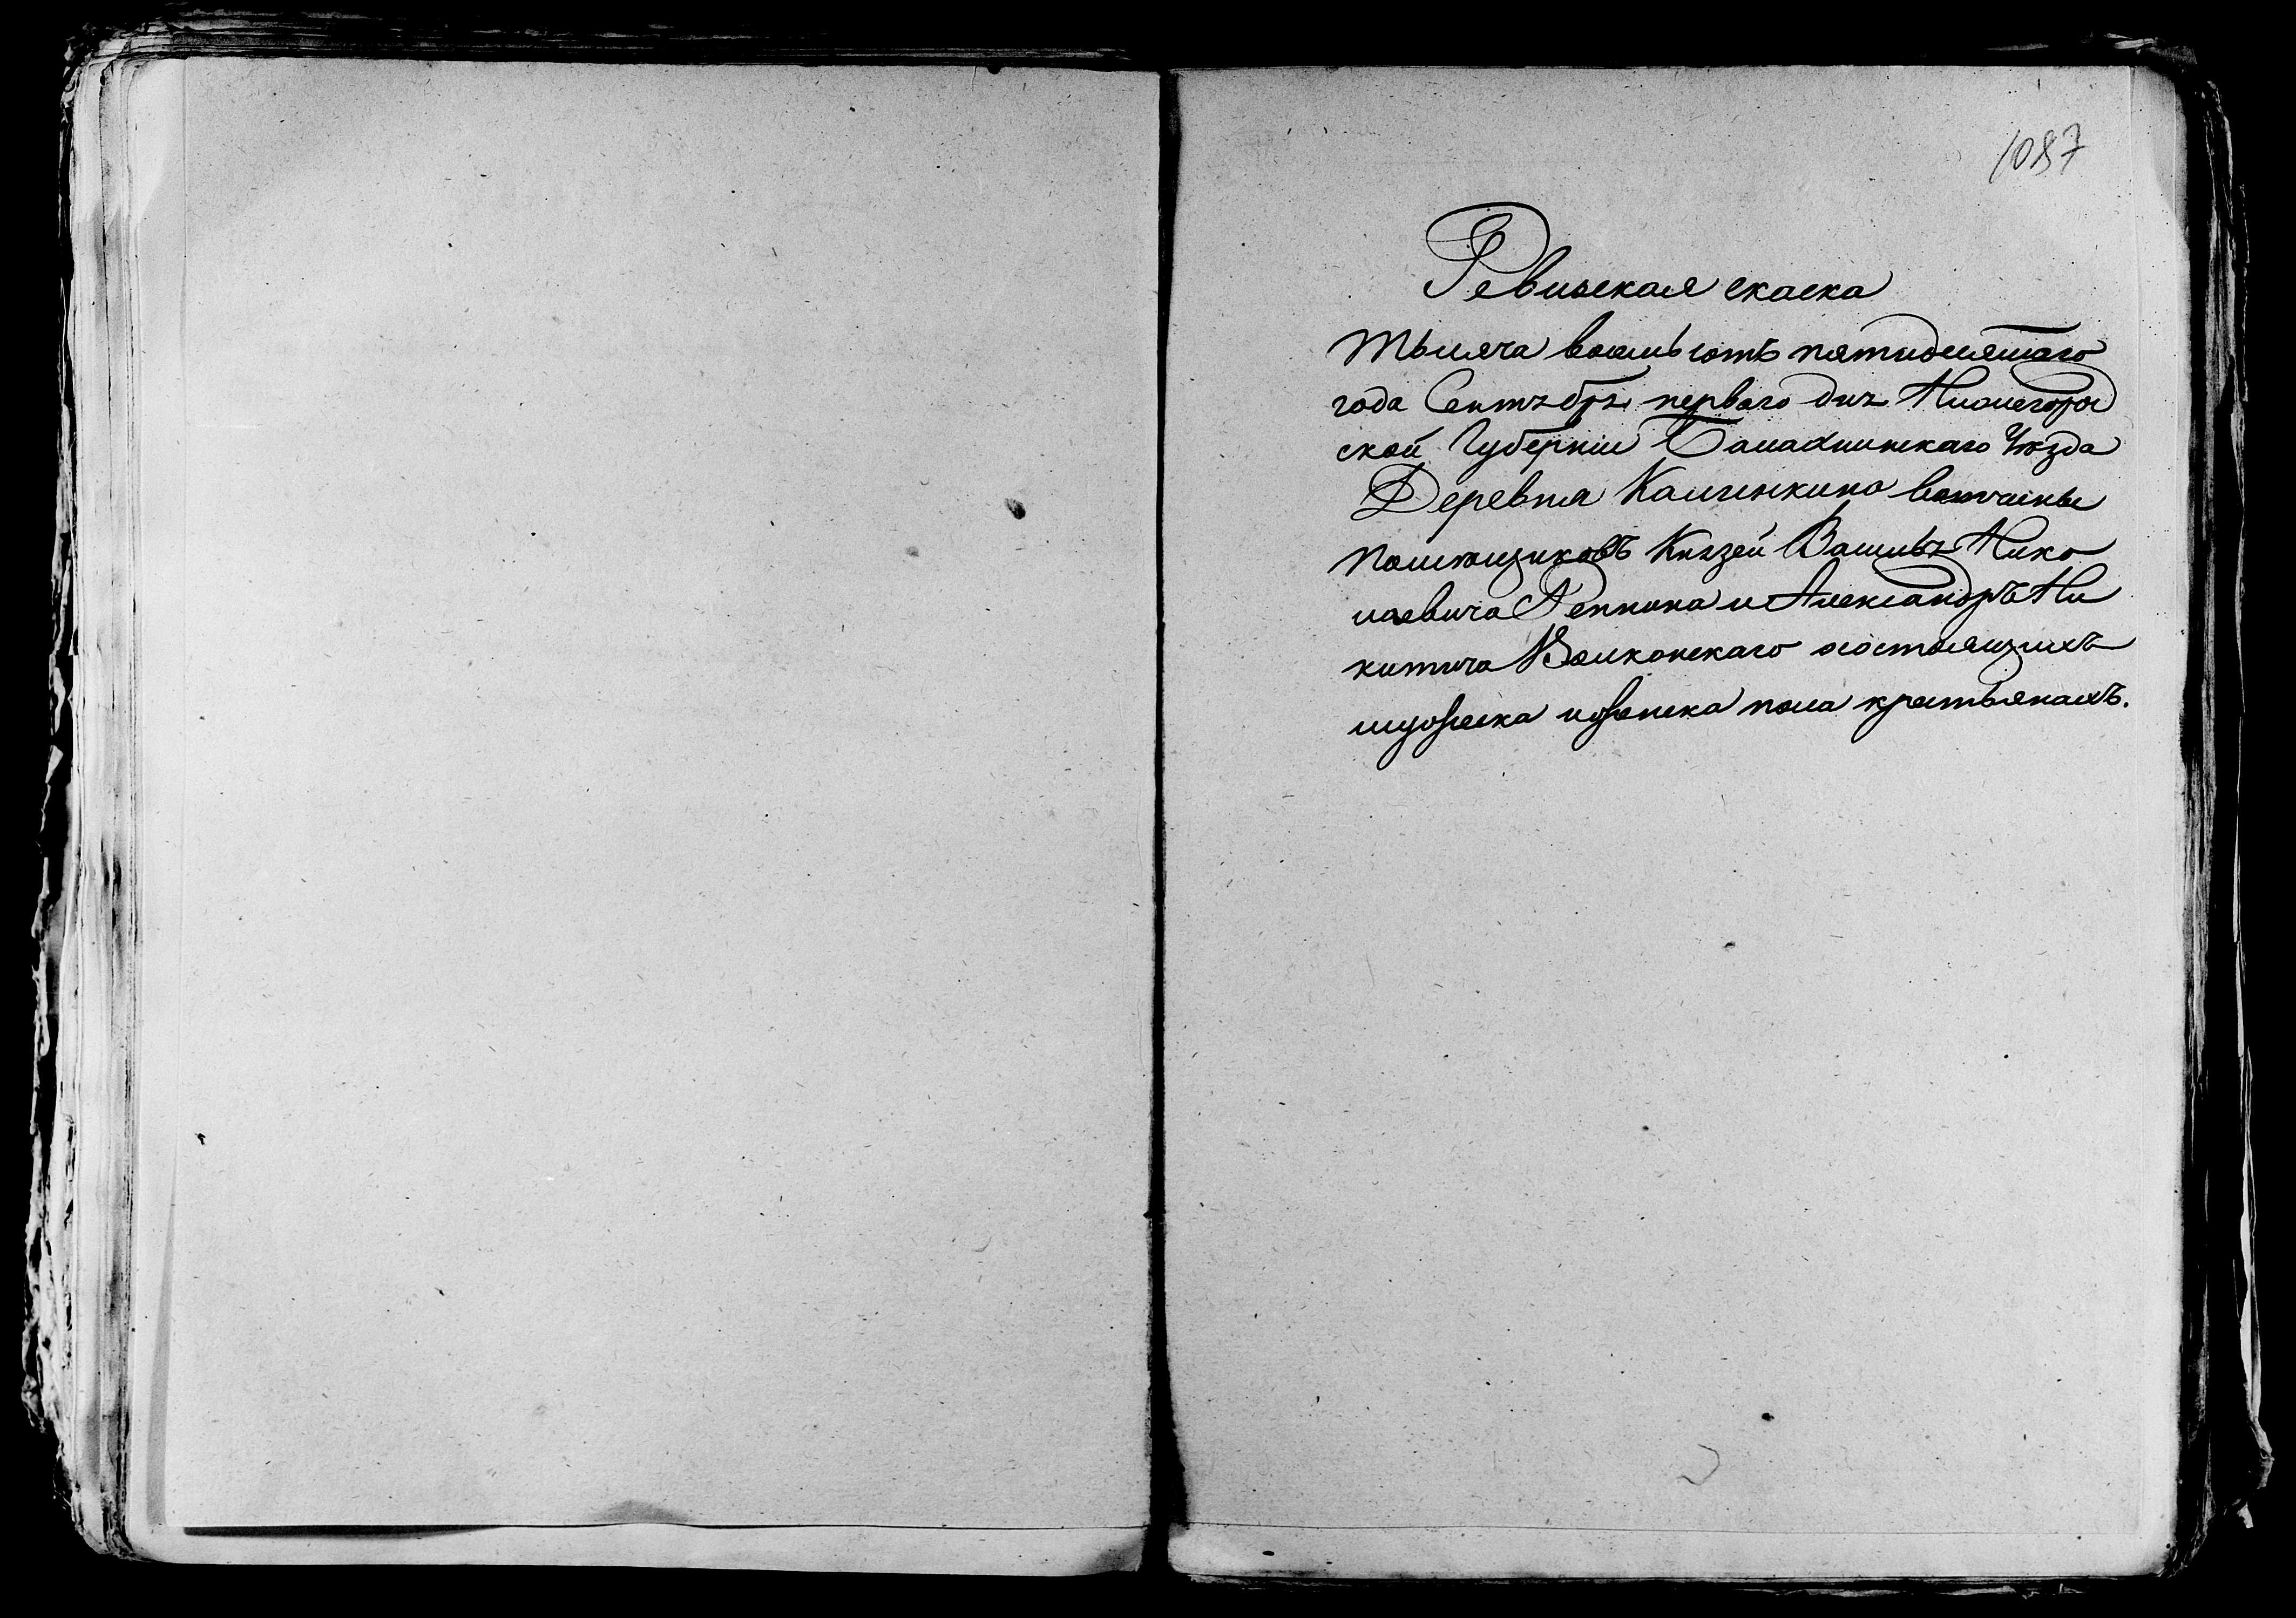 1087
Ревиская скаска
Тысяча восемь сотъ пятидесятаго
года Сентября перваго дня Нижегород
ской Губернiи Балахнинскаго Уѣзда
Деревня Калинкино вотчины
помѣщиковъ Князей Василья Нико
лаевича Репнина и Александръ Ни
китича Волконскаго состоящихъ
мужеска и женска пола крестьянахъ.